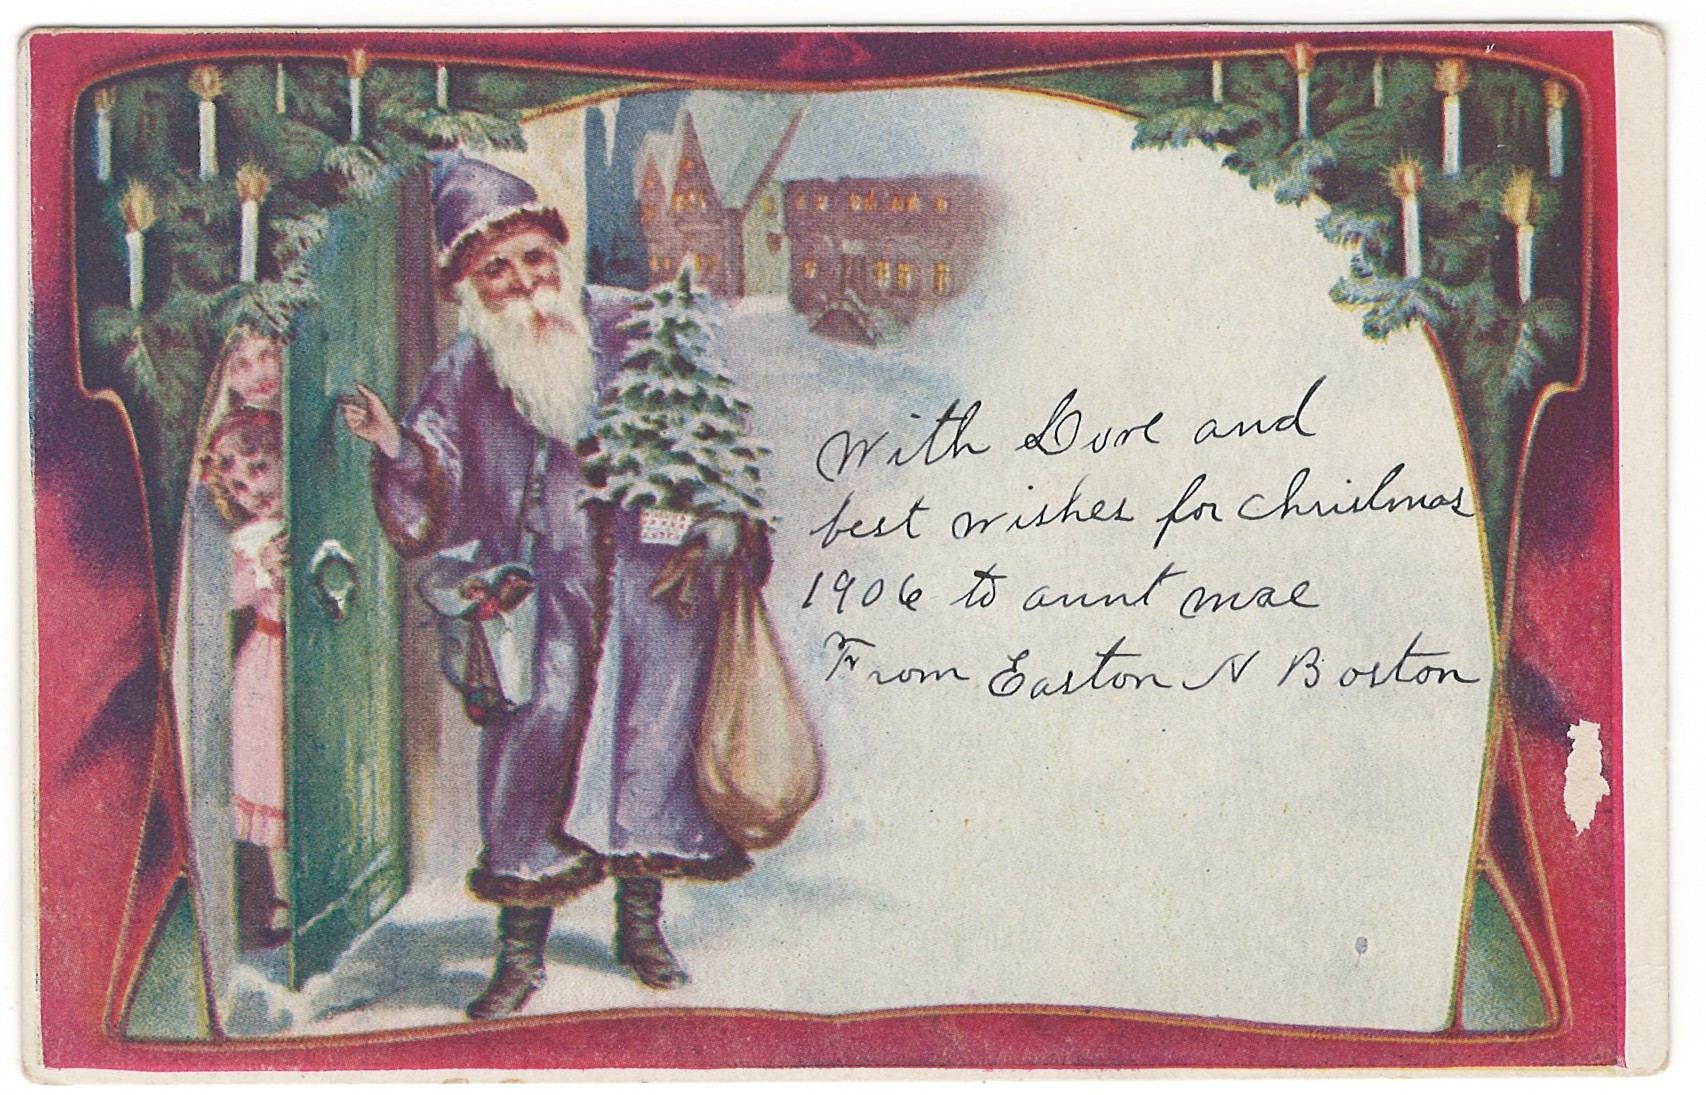 With Love and
best wishes for christmas
1906 to aunt mae
From Easton N Boston